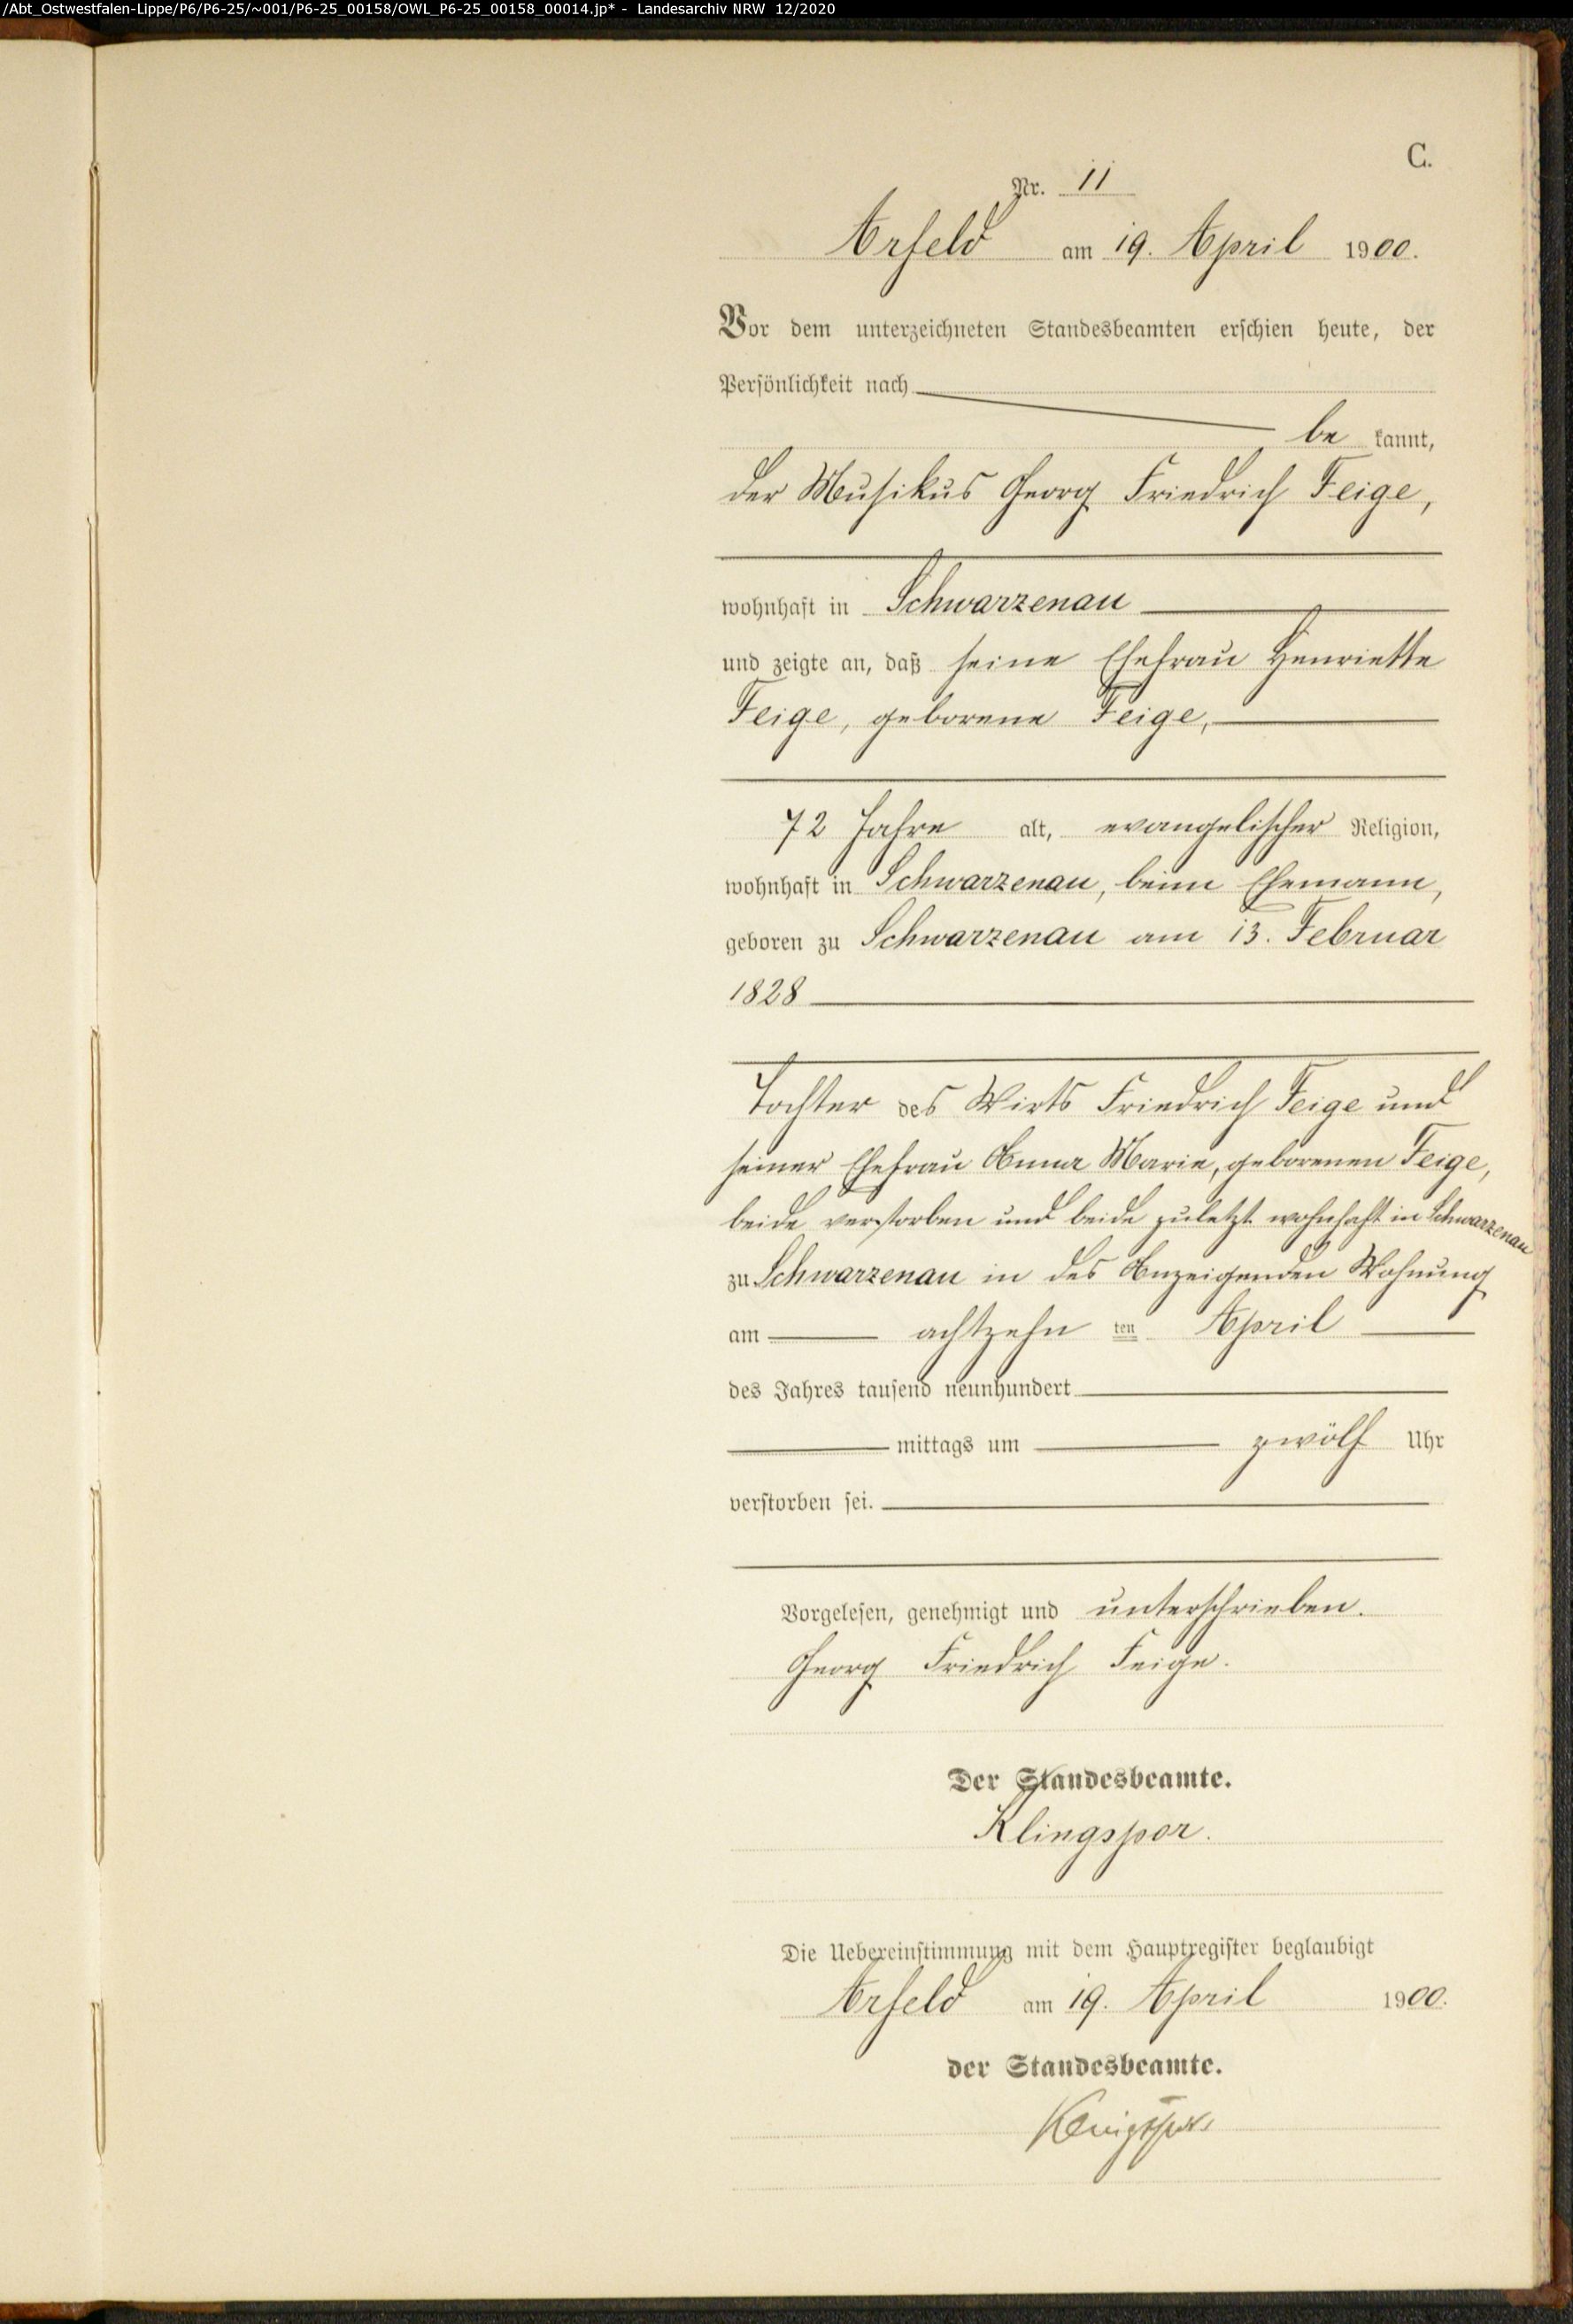 /Abt_Ostwestfalen-Lippe/P6/P6-25/~001/P6-25_00158/OWL_P6-25_00158_00014.jp* - Landesarchiv NRW 12/2020
C.
Nr. 11
Arfeld am 19. April 1900.
Vor dem unterzeichneten Standesbeamten erschien heute, der
Persönlichkeit nach
be kannt,
der Musikus Georg Friedrich Feige,
wohnhaft in Schwarzenau
und zeigte an, daß seine Ehefrau Henriette
Feige, geborene Feige,
72 Jahre alt, evangelischer Religion,
wohnhaft in Schwarzenau, beim Ehemann,
geboren zu Schwarzenau am 13. Februar
1828
Tochter des Wirts Friedrich Feige und
seiner Ehefrau Anna Marie, geborenen Feige,
beide verstorben und beide zuletzt wohnhaft in Schwarzenau
zu Schwarzenau in des Anzeigenden Wohnung
am achtzehn ten April
des Jahres tausend neunhundert
mittags um zwölf Uhr
verstorben sei.
Vorgelesen, genehmigt und unterschrieben.
Georg Friedrich Feige.
Der Standesbeamte.
Klingspor.
Die Uebereinstimmung mit dem Hauptregister beglaubigt
Arfeld am 19. April 1900.
der Standesbeamte.
Klingspor